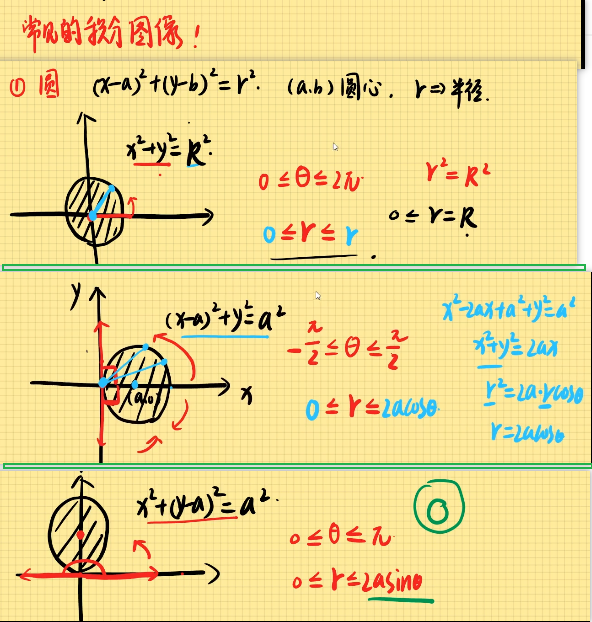 常见的积分图像！
① 圆 (x-a)²+(y-b)²=r². (a.b)圆心. r⇒半径.
x²+y²=R².
0≤θ≤2π
r²=R²
0≤r≤r.
0≤r=R
y
(x-a)²+y²=a²
x
(a,0)
-π/2≤θ≤π/2
0≤r≤2acosθ
x²-2ax+a²+y²=a²
x²+y²=2ax
r²=2a·rcosθ
r=2acosθ
x²+(y-a)²=a².
0≤θ≤π
0≤r≤2asinθ
0